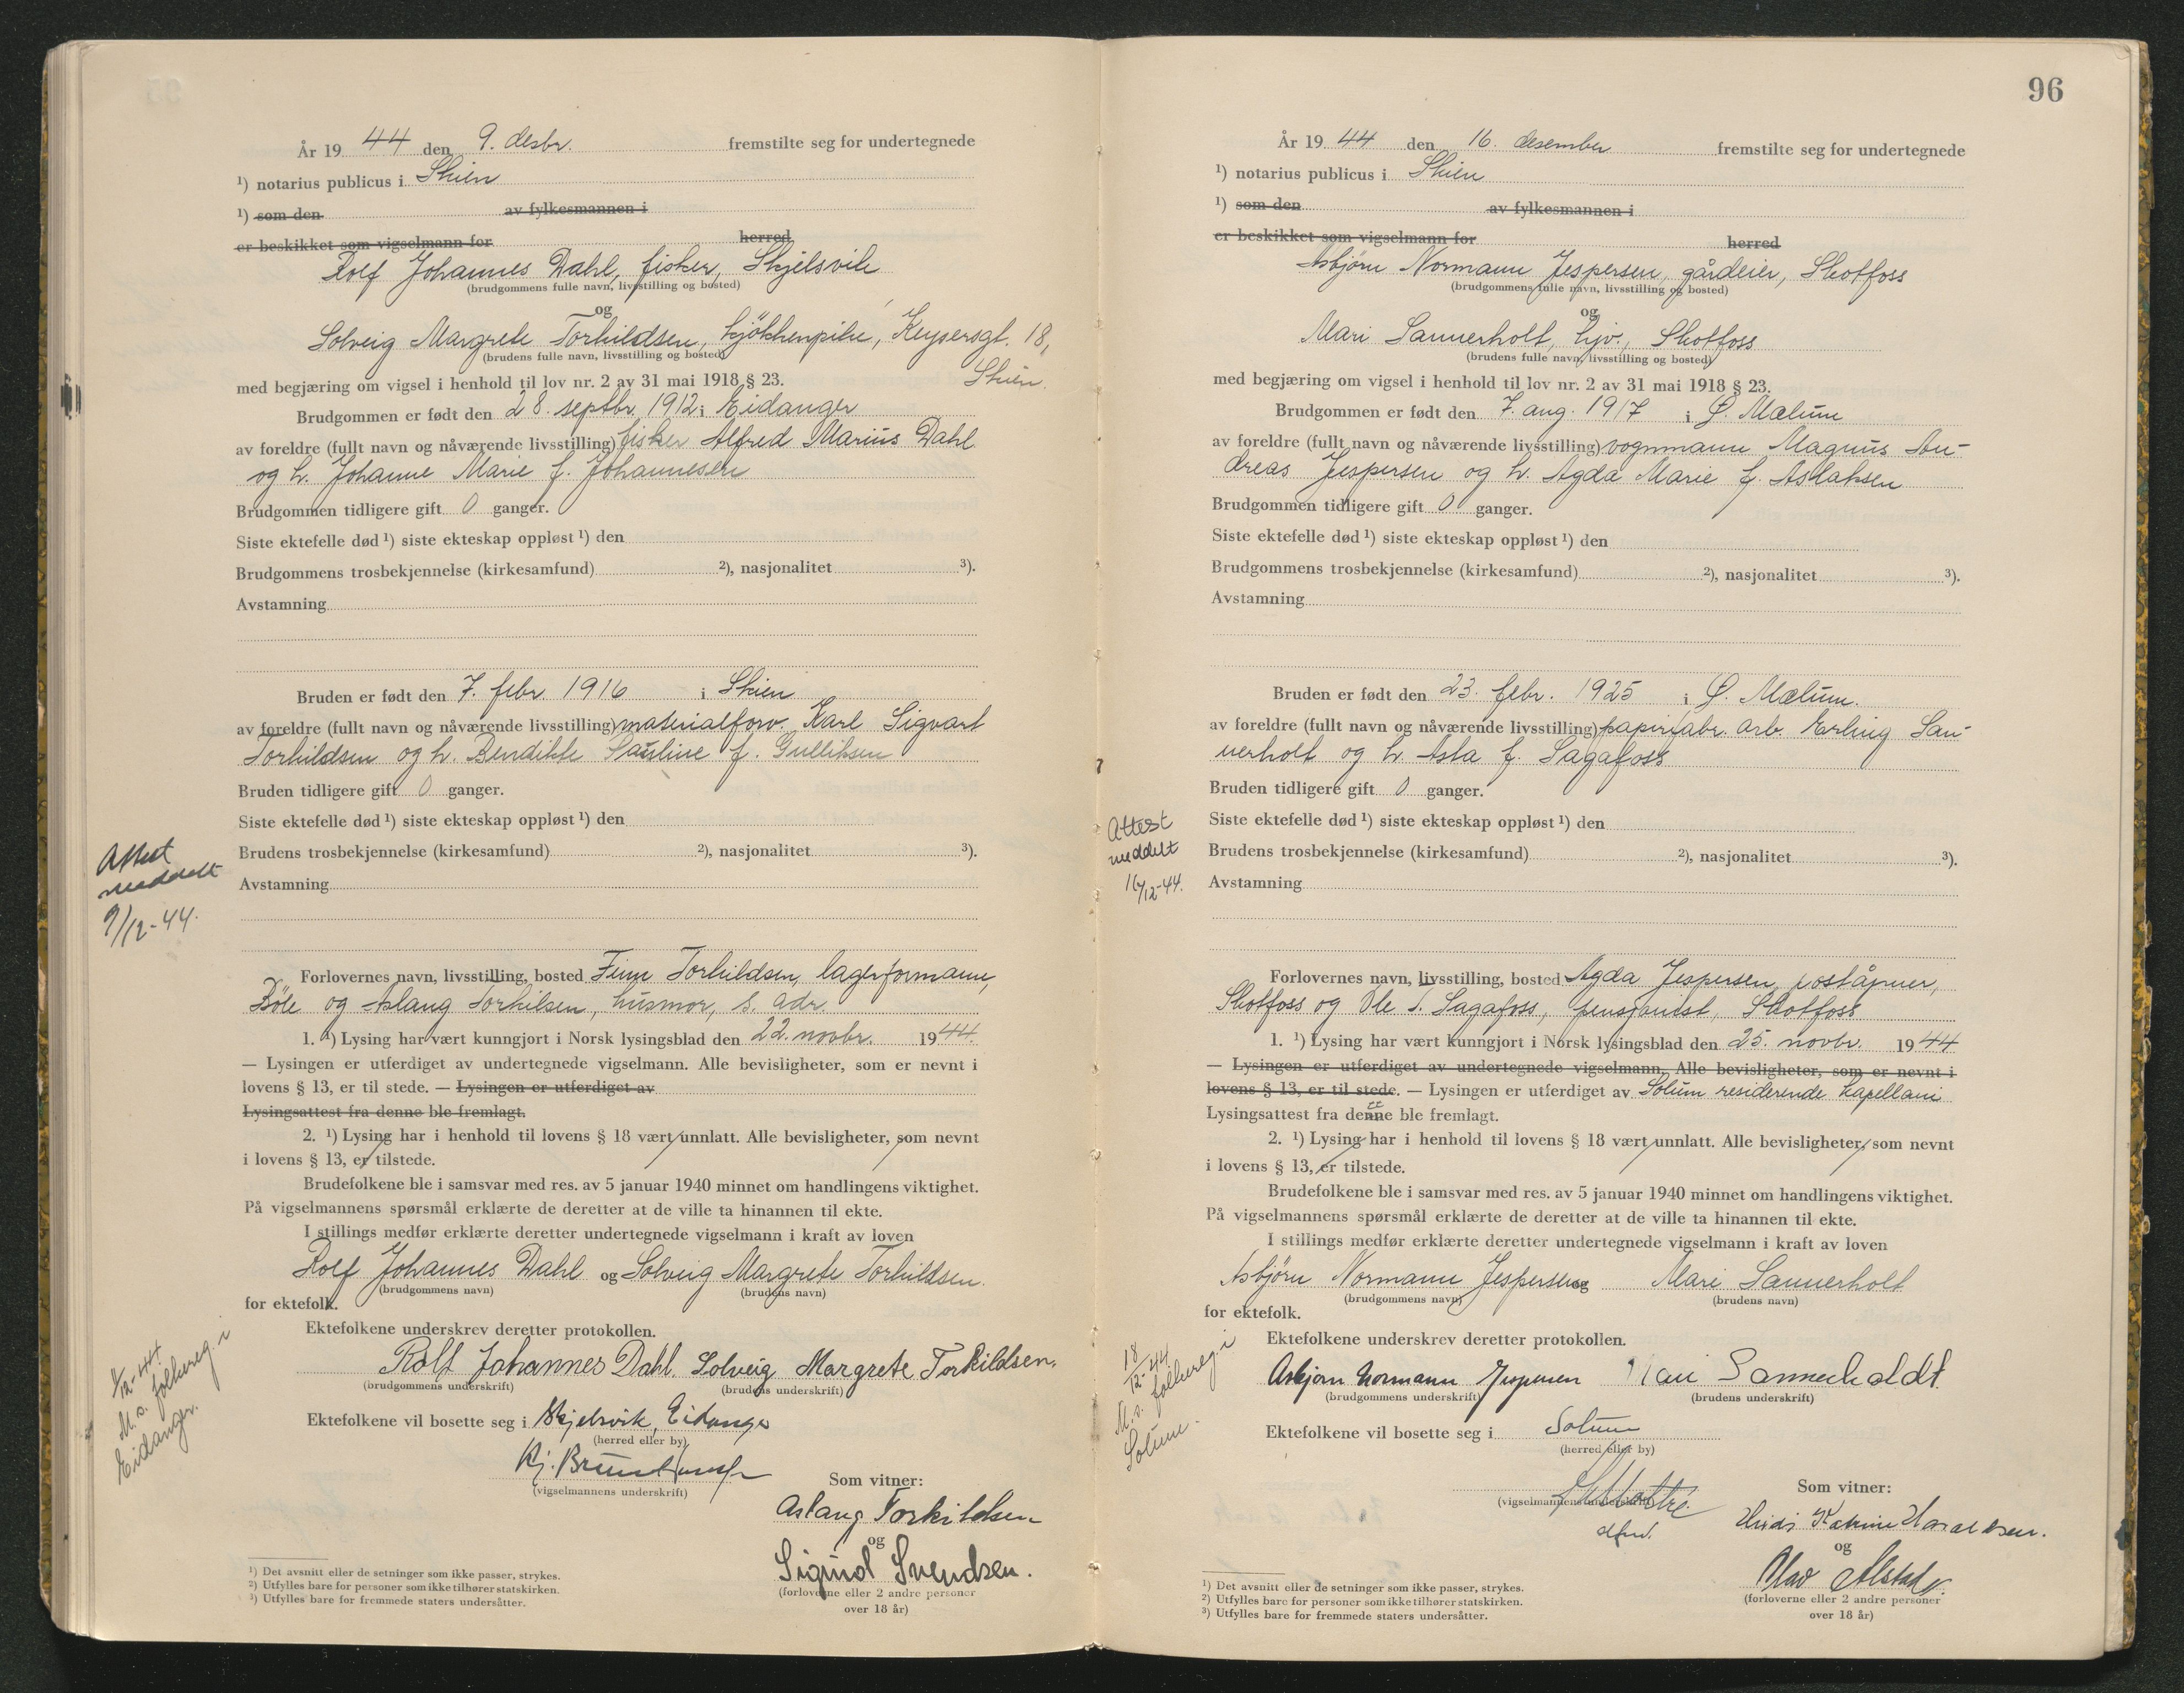 År 19 44 den 9. desbr. fremstilte seg for undertegnede
¹) notarius publicus i Skien
¹) som den av fylkesmannen i
er beskikket som vigselmann for herred
Rolf Johannes Dahl, fisker, Skjelsvik
(brudgommens fulle navn, livsstilling og bosted)
og
Solveig Margrete Torkildsen, kjökkenpike, Keysersgt. 18,
(brudens fulle navn, livsstilling og bosted)
Skien.
med begjæring om vigsel i henhold til lov nr. 2 av 31 mai 1918 § 23.
Brudgommen er født den 28. septbr. 1912 i Eidanger
av foreldre (fullt navn og nåværende livsstilling) fisker Alfred Marius Dahl
og h. Johanne Marie f. Johannesen
Brudgommen tidligere gift 0 ganger.
Siste ektefelle død ¹) siste ekteskap oppløst ¹) den
Brudgommens trosbekjennelse (kirkesamfund) ²), nasjonalitet ³).
Avstamning
Bruden er født den 7. febr. 1916 i Skien
av foreldre (fullt navn og nåværende livsstilling) materialforv. Karl Sigvart
Torkildsen og h. Bendikte Pauline f. Gulliksen
Bruden tidligere gift 0 ganger.
Siste ektefelle død ¹) siste ekteskap oppløst ¹) den
Brudens trosbekjennelse (kirkesamfund) ²), nasjonalitet ³).
Avstamning
Attest
meddelt
9/12-44.
Forlovernes navn, livsstilling, bosted Finn Torkildsen, lagerformann,
Böle og Aslaug Torkilsen, husmor, s. adr.
1. ¹) Lysing har vært kunngjort i Norsk lysingsblad den 22. novbr. 1944.
— Lysingen er utferdiget av undertegnede vigselmann. Alle bevisligheter, som er nevnt i
lovens § 13, er til stede. — Lysingen er utferdiget av
Lysingsattest fra denne ble fremlagt.
2. ¹) Lysing har i henhold til lovens § 18 vært unnlatt. Alle bevisligheter, som nevnt
i lovens § 13, er tilstede.
Brudefolkene ble i samsvar med res. av 5 januar 1940 minnet om handlingens viktighet.
På vigselmannens spørsmål erklærte de deretter at de ville ta hinannen til ekte.
I stillings medfør erklærte deretter undertegnede vigselmann i kraft av loven
Rolf Johannes Dahl og Solveig Margrete Torkildsen.
(brudgommens navn) (brudens navn)
for ektefolk.
Ektefolkene underskrev deretter protokollen.
Rolf Johannes Dahl. Solveig Margrete Torkildsen.
(brudgommens underskrift) (brudens underskrift)
Ektefolkene vil bosette seg i Skjelsvik, Eidanger
(herred eller by)
(vigselmannens underskrift)
M. s. folkereg. i
Eidanger.
Som vitner:
Aslaug Torkildsen
og
Sigurd Svendsen.
(forloverne eller 2 andre personer
over 18 år)
¹) Det avsnitt eller de setninger som ikke passer, strykes.
²) Utfylles bare for personer som ikke tilhører statskirken.
³) Utfylles bare for fremmede staters undersåtter.
96
År 19 44 den 16. desember fremstilte seg for undertegnede
¹) notarius publicus i Skien
¹) som den av fylkesmannen i
er beskikket som vigselmann for herred
Asbjörn Normann Jespersen, gårdeier, Skotfoss
(brudgommens fulle navn, livsstilling og bosted)
og
Mari Sannerholt, hjv., Skotfoss
(brudens fulle navn, livsstilling og bosted)
med begjæring om vigsel i henhold til lov nr. 2 av 31 mai 1918 § 23.
Brudgommen er født den 7. aug. 1917 i Ø. Mælum
av foreldre (fullt navn og nåværende livsstilling) vognmann Magnus An-
dreas Jespersen og h. Agda Marie f. Aslaksen
Brudgommen tidligere gift 0 ganger.
Siste ektefelle død ¹) siste ekteskap oppløst ¹) den
Brudgommens trosbekjennelse (kirkesamfund) ²), nasjonalitet ³).
Avstamning
Bruden er født den 23. febr. 1925 i Ø. Mælum.
av foreldre (fullt navn og nåværende livsstilling) papirfabr. arb. Erling San-
nerholt og h. Asta f. Sagafoss
Bruden tidligere gift 0 ganger.
Siste ektefelle død ¹) siste ekteskap oppløst ¹) den
Brudens trosbekjennelse (kirkesamfund) ²), nasjonalitet ³).
Avstamning
Attest
meddelt
16/12-44.
Forlovernes navn, livsstilling, bosted Agda Jespersen, poståpner,
Skotfoss og Ole T. Sagafoss, pensjonist, Skotfoss
1. ¹) Lysing har vært kunngjort i Norsk lysingsblad den 25. novbr. 1944
— Lysingen er utferdiget av undertegnede vigselmann. Alle bevisligheter, som er nevnt i
lovens § 13, er til stede. — Lysingen er utferdiget av Solum residerende kapellani
Lysingsattest fra denne ble fremlagt.
2. ¹) Lysing har i henhold til lovens § 18 vært unnlatt. Alle bevisligheter, som nevnt
i lovens § 13, er tilstede.
Brudefolkene ble i samsvar med res. av 5 januar 1940 minnet om handlingens viktighet.
På vigselmannens spørsmål erklærte de deretter at de ville ta hinannen til ekte.
I stillings medfør erklærte deretter undertegnede vigselmann i kraft av loven
Asbjörn Normann Jespersen og Mari Sannerholt
(brudgommens navn) (brudens navn)
for ektefolk.
Ektefolkene underskrev deretter protokollen.
Asbjørn Normann Jespersen Mari Sannerholdt.
(brudgommens underskrift) (brudens underskrift)
Ektefolkene vil bosette seg i Solum
(herred eller by)
(vigselmannens underskrift)
18/12-44.
M. s. folkereg. i
Solum.
Som vitner:
Katrine Haraldsen.
og
Olav Alstad.
(forloverne eller 2 andre personer
over 18 år)
¹) Det avsnitt eller de setninger som ikke passer, strykes.
²) Utfylles bare for personer som ikke tilhører statskirken.
³) Utfylles bare for fremmede staters undersåtter.